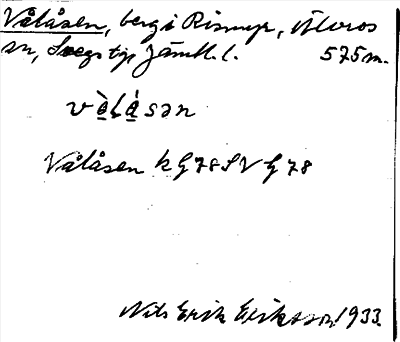 Vålåsen, berg i Rismyr, Älvros
sn, Svegs tg, Jämtl. l. 575 m.
vὰlásən
Vålåsen k G 78 S V G 78
Nils Erik Eriksson 1933.